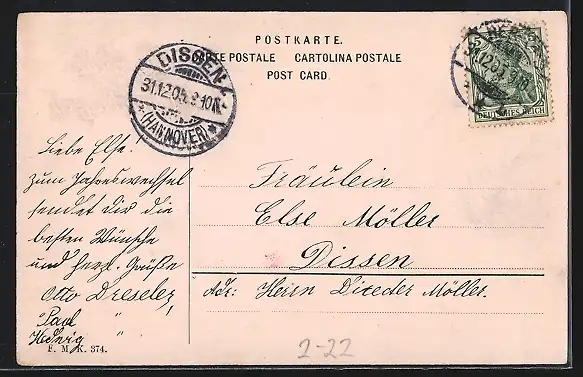 POSTKARTE.
CARTE POSTALE CARTOLINA POSTALE
POST CARD
DISSEN
31.12.05. 9-10
(HANNOVER)
5
DEUTSCHES REICH
Liebe Else!
zum Jahreswechsel
sendet dir die
besten Wünsche
und herzl. Grüße
Otto Dreseler,
" Paul "
Hedwig "
F. M. K. 374.
Fräulein
Else Möller
Dissen
Adr: Herrn Möller.
2-22